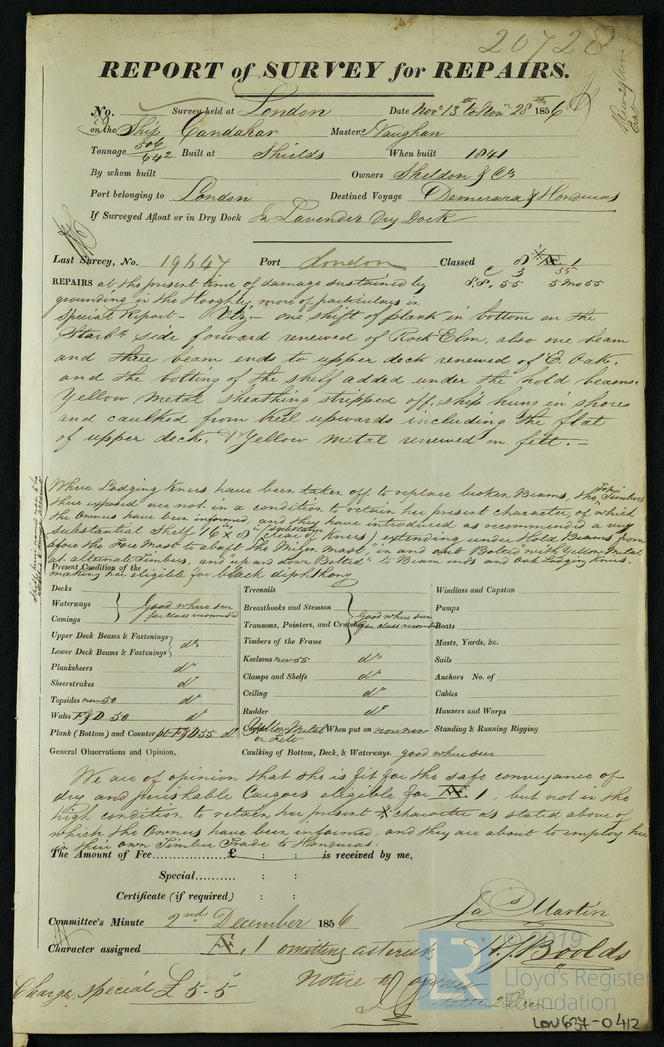 20728
REPORT of SURVEY for REPAIRS.
No. Survey held at London Date Novr 13th to Novr 28th 1856
on the Ship Candahar Master Vaughan
Tonnage 506 642 Built at Shields When built 1841
By whom built Owners Sheldon & Co
Port belonging to London Destined Voyage Demerara & Honduras
If Surveyed Afloat or in Dry Dock In Lavender Dry Dock
Last Survey, No. 19447 Port London Classed 8 Æ. 1
REPAIRS at the present time of damage sustained by
5 mo 55
grounding in the Hooghly, more of particulars in
Special Report - Viz;- one shift of plank in bottom on the
Starbd side forward renewed of Rock Elm, also one beam
and three beam ends to upper deck renewed of E. Oak,
and the bolting of the shelf added under the hold beams.
Yellow metal sheathing stripped off, ship hung in shores
and caulked from keel upwards including the flat
of upper deck. Yellow metal renewed on felt. -
Where Lodging Knees have been taken off to replace broken Beams, the Top Timbers
there exposed are not in a condition to retain her present character, of which
the Owners have been informed, and they have introduced as recommended a very
substantial Shelf 16 x 8 clear of Knees, extending under Hold Beams from
afore the Fore Mast to abaft the Mizen Mast, in and out Bolted with Yellow Metal
at alternate Timbers, and up and down Bolted to Beam ends and Oak Lodging Knees
Present Condition of the
making her eligible for black diphthong
Decks
Waterways
Comings
good where seen
for class recommended
Upper Deck Beams & Fastenings
Lower Deck Beams & Fastenings
do
Planksheers do
Sheerstrakes do
Topsides new 50 do
Wales F & D 50 do
Plank (Bottom) and Counter pt F & D 55 do
Treenails
Breasthooks and Stemson
Transoms, Pointers, and Crutches
Timbers of the Frame
good where seen
for class recommended
Keelsons new 55 do
Clamps and Shelfs do
Ceiling do
Rudder do
Yellow Metal on Felt When put on now new
Caulking of Bottom, Deck, & Waterways. good where seen
Windlass and Capstan
Pumps
Boats
Masts, Yards, &c.
Sails
Anchors No. of
Cables
Hawsers and Warps
Standing & Running Rigging
General Observations and Opinion,
We are of opinion that she is fit for the safe conveyance of
dry and perishable Cargoes eligible for Æ. 1, but not in the
high condition to retain her present * character as stated above of
which the Owners have been informed, and they are about to employ her
in their own Timber Trade to Honduras.
The Amount of Fee £ : : is received by me,
Special : :
Certificate (if required) : :
Jas Martin
Committee's Minute 2nd December 1856
Character assigned Æ. 1 omitting asterisk
H. J. Boolds
Charge Special £5-5
Notice to owner
© 2019
Lloyd's Register
Foundation
LON637-0412